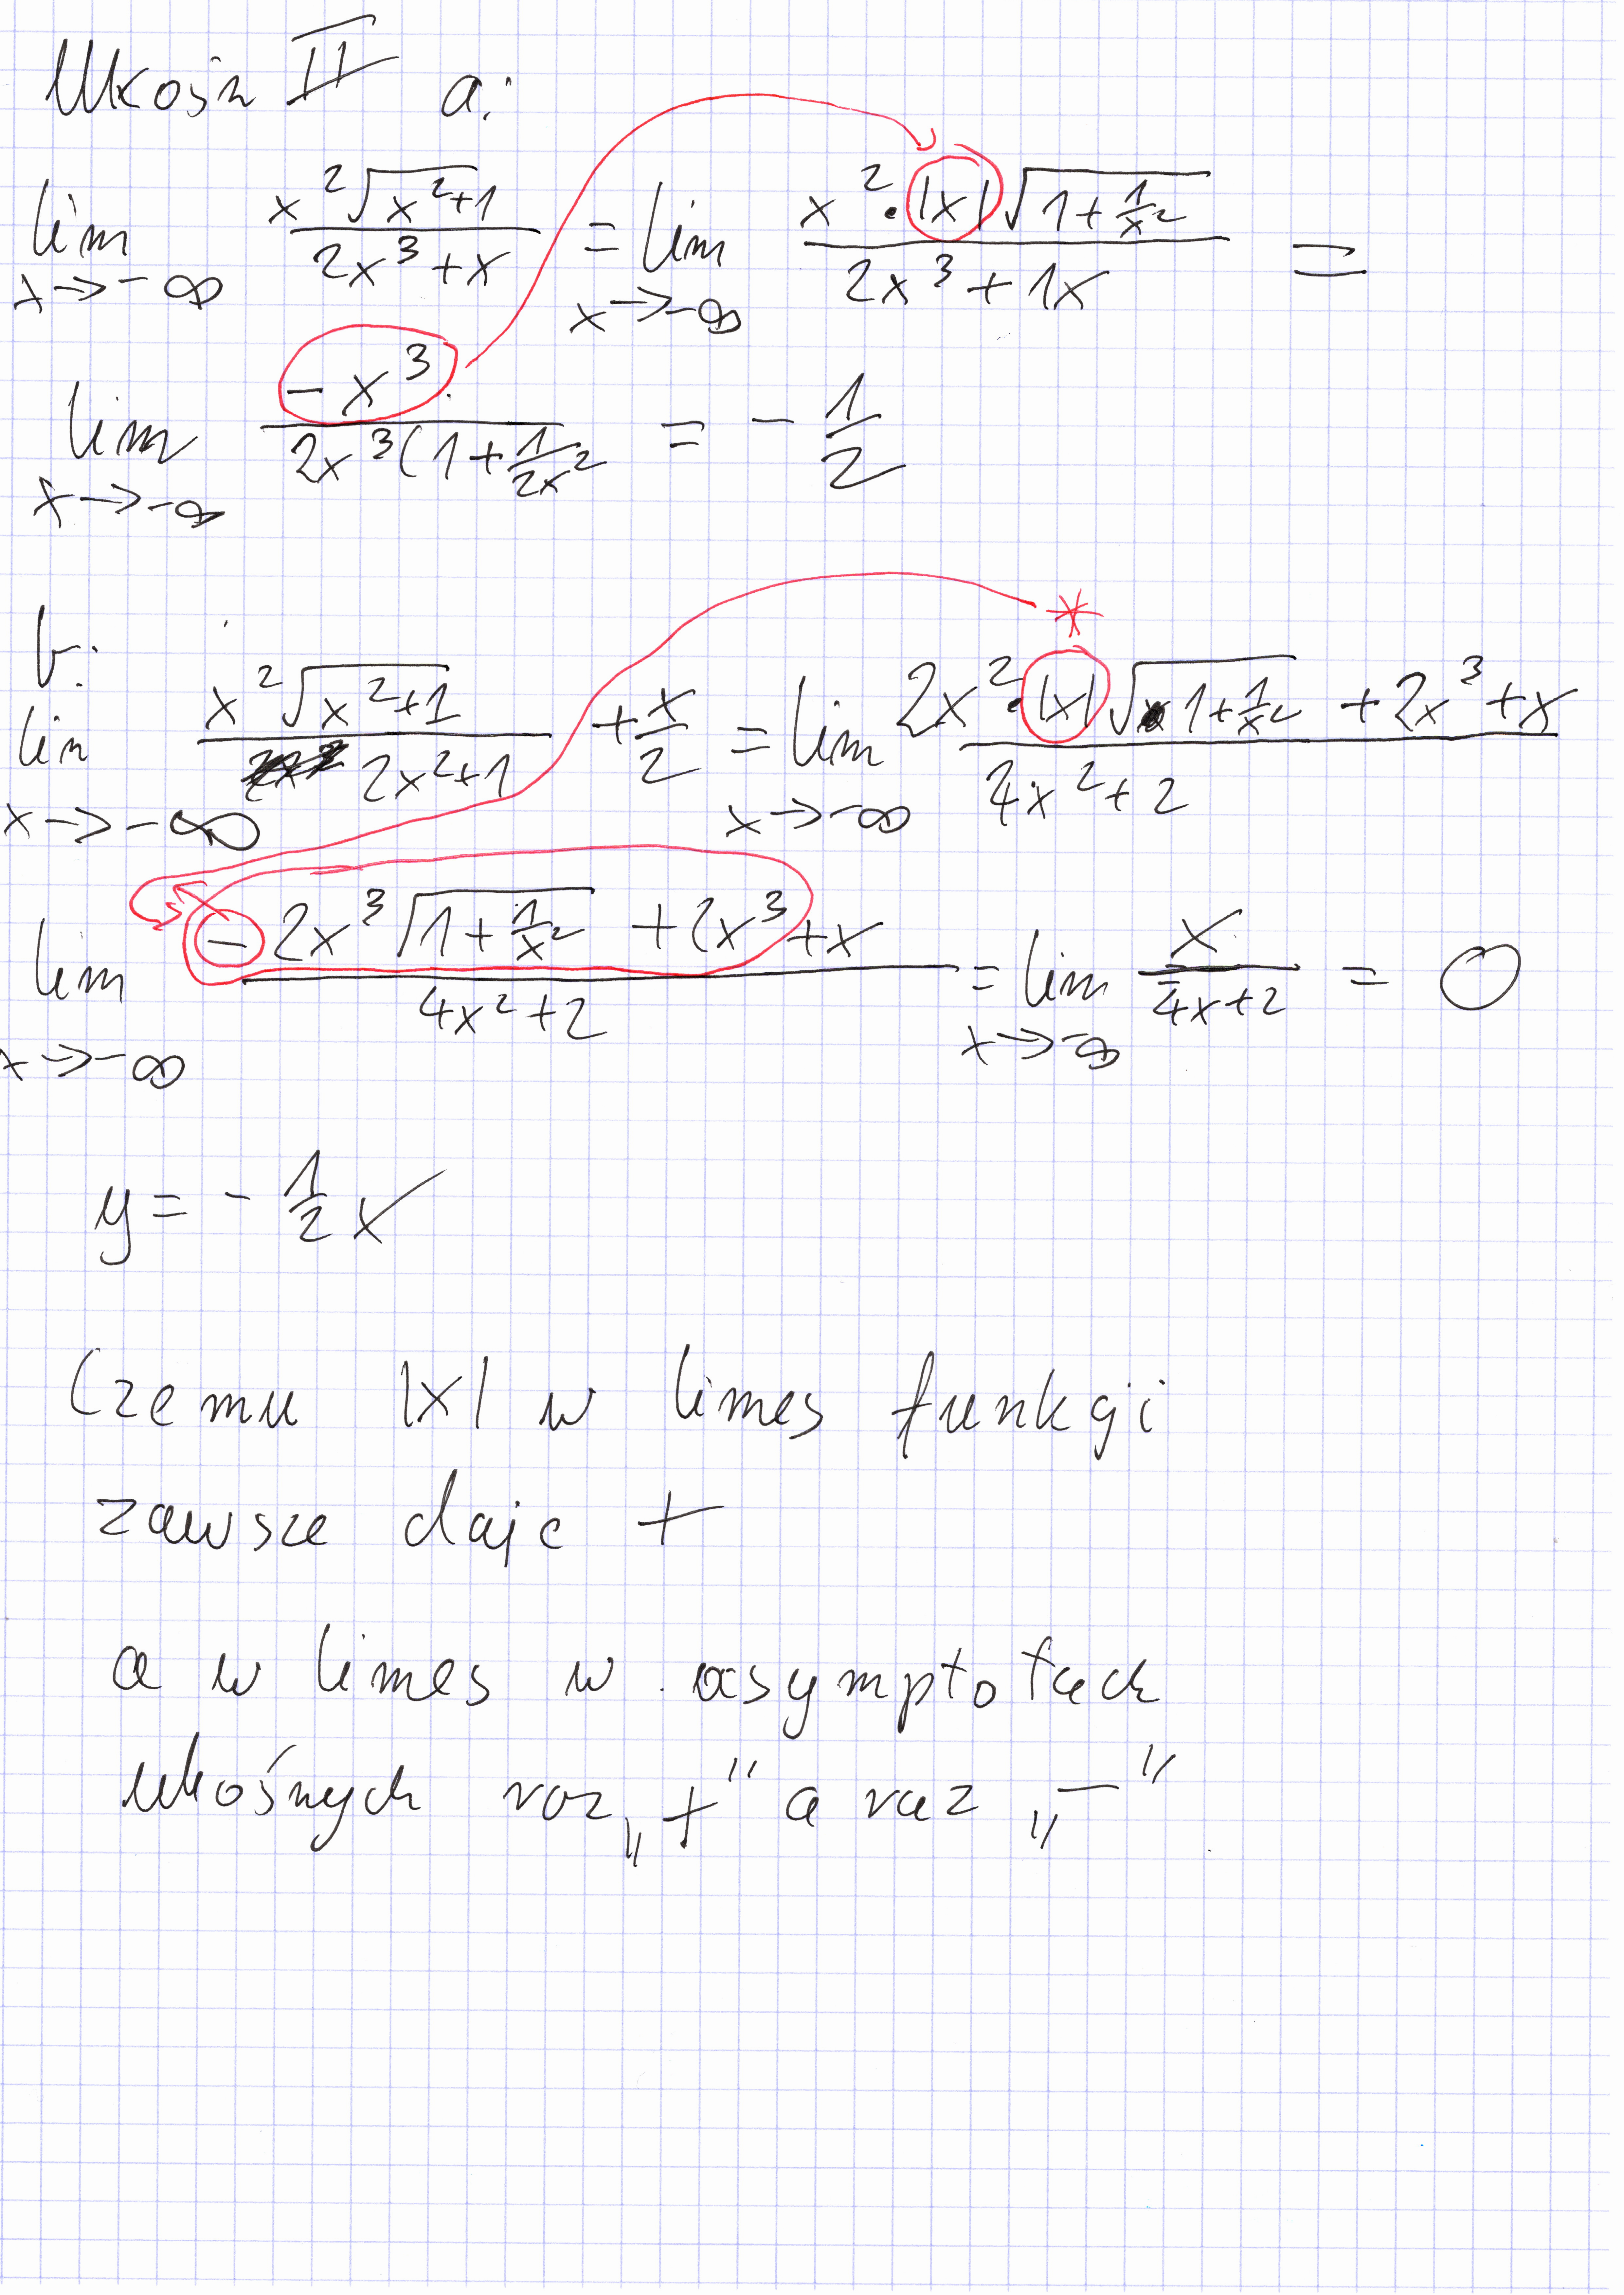 Ukośn II a:
lim x→-∞ x²√(x²+1) / (2x³+x) = lim x→-∞ x²·|x|√(1+1/x²) / (2x³+1x) =
lim x→-∞ -x³ / (2x³(1+1/2x² = -1/2
b:
lim x→-∞ x²√(x²+1) / (2x²+1) + x/2 = lim x→-∞ (2x²·|x|√(1+1/x²) + 2x³+x) / (4x²+2)
*
lim x→-∞ (-2x³√(1+1/x²) + 2x³+x) / (4x²+2) = lim x→-∞ x / (4x+2) = 0
y = -1/2 x
Czemu |x| w limes funkcji
zawsze daje +
a w limes w asymptotach
ukośnych raz „+" a raz „-"